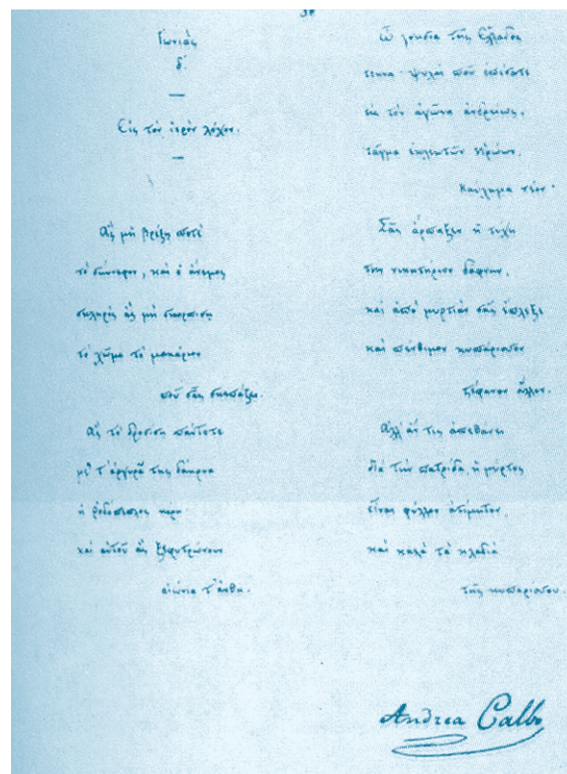 Ἰωνιὰς
δ΄.
Εἰς τὸν ἱερὸν λόχον.
Ἂς μὴ βρέξῃ ποτὲ
τὸ σύννεφον, καὶ ὁ ἄνεμος
σκληρὸς ἂς μὴ σκορπίσῃ
τὸ χῶμα τὸ μακάριον
ποὺ σᾶς σκεπάζει.
Ἂς τὸ δροσίσῃ πάντοτε
μὲ τ' ἀργυρᾶ της δάκρυα
ἡ ῥοδόπεπλος κόρη
καὶ αὐτοῦ ἂς ξεφυτρώνουν
αἰώνια τ' ἄνθη.
Ὦ γνήσια τῆς Ἑλλάδος
τέκνα· ψυχαὶ ποὺ ἐπέσατε
εἰς τὸν ἀγῶνα ἀνδρείως,
τάγμα ἐκλεκτῶν Ἡρώων,
καύχημα νέον·
Σᾶς ἅρπαξεν ἡ τύχη
τὴν νικητήριον δάφνην,
καὶ ἀπὸ μυρτιὰν σᾶς ἔπλεξε
καὶ πένθιμον κυπάρισσον
στέφανον ἄλλον.
Ἀλλ' ἄν τις ἀπεθάνῃ
διὰ τὴν πατρίδα, ἡ μύρτος
εἶναι φύλλον ἀτίμητον,
καὶ καλὰ τὰ κλαδιὰ
τῆς κυπαρίσσου.
Andrea Calbo